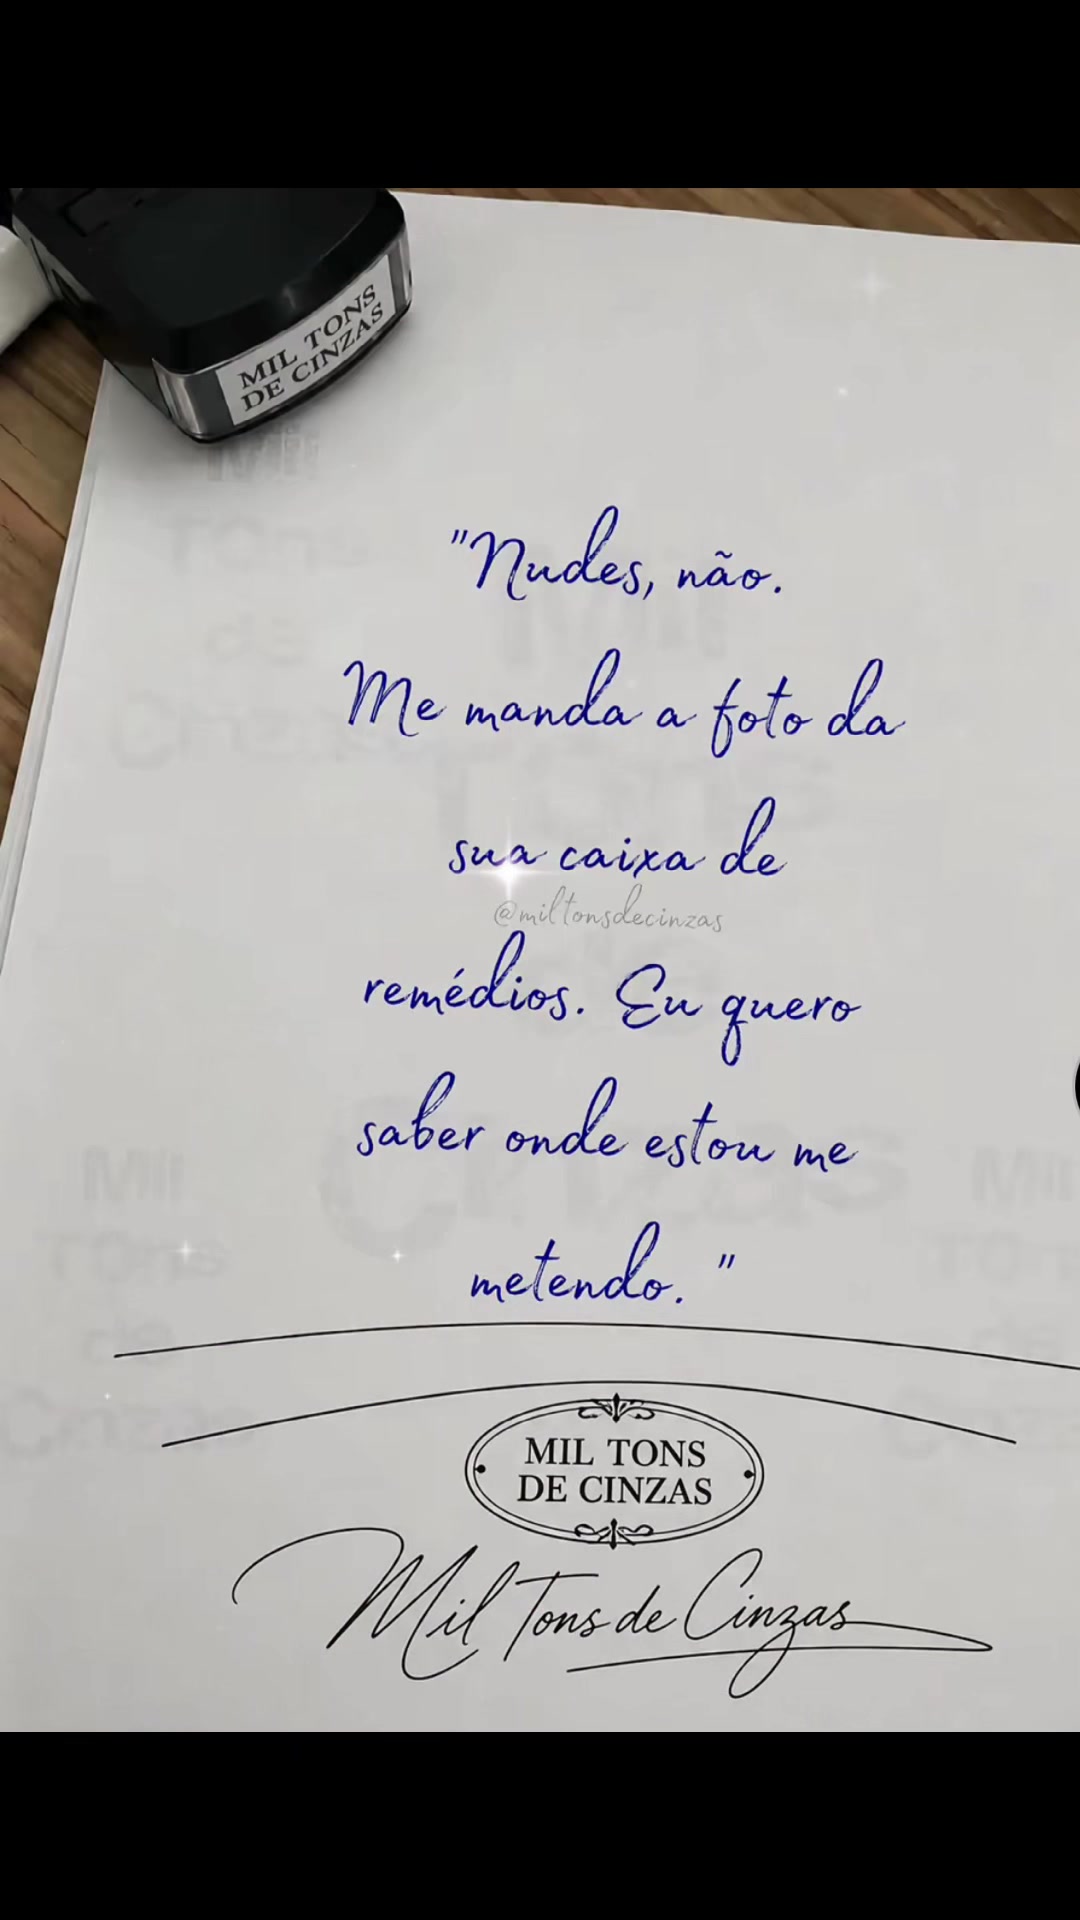 MIL TONS
DE CINZAS
"Nudes, não.
Me manda a foto da
sua caixa de
@miltonsdecinzas
remédios. Eu quero
saber onde estou me
metendo. "
MIL TONS
DE CINZAS
Mil Tons de Cinzas